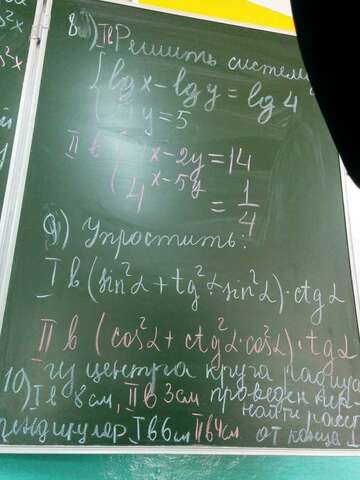 8) I в Решить систем
lg x - lg y = lg 4
y = 5
II в x - 2y = 14
4^(x - 5y) = 1/4
9) Упростить:
I в (sin²α + tg²α · sin²α) · ctg α
II в (cos²α + ctg²α · cos²α) · tg α
Из центра круга радиус
10) I в 8 см, II в 3 см проведен пер-
найти расст
пендикуляр I в 6 см II в 4 см от конца